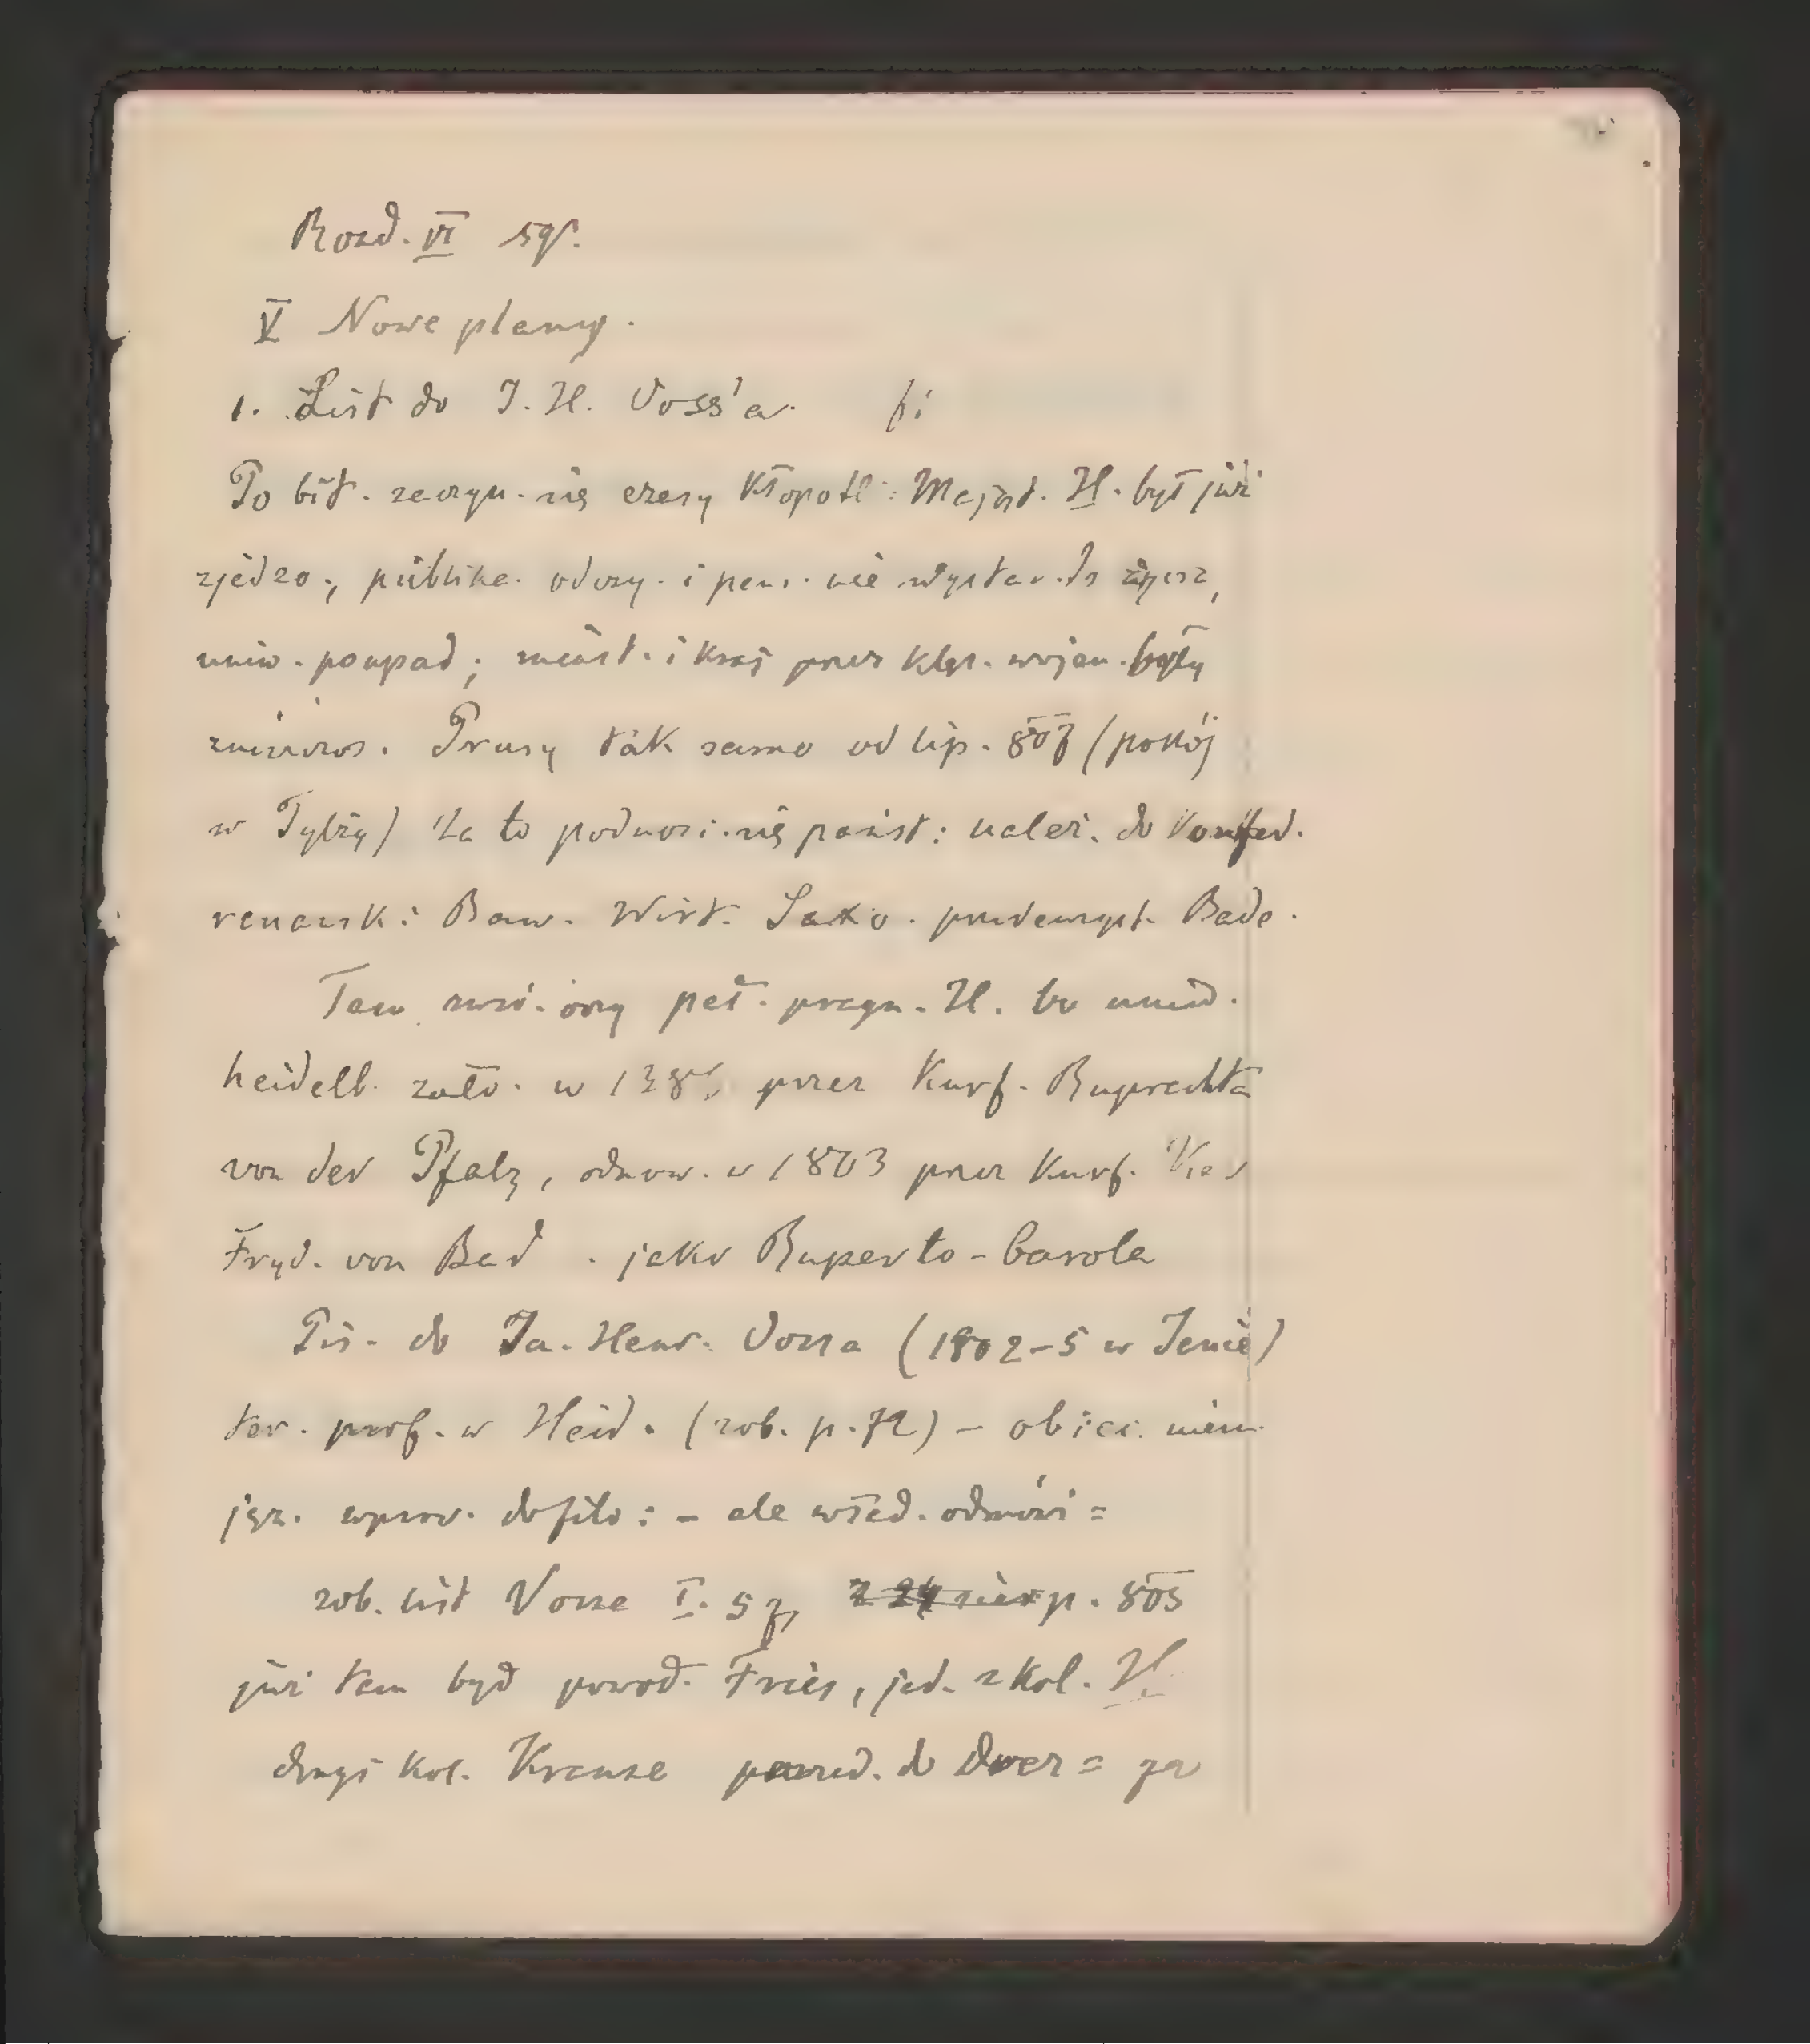 Rozd. VI sqs.
V Nowe plany.
1. List do J. H. Voss'a.
Po bit. zaczyn. się czasy kłopotl: Mająt. H. był już
zjedzo., publika. odczy. i pens. nie wystar. do życia,
uniw. poupad; miast. i kraj przez klęs. wojen. były
zniszczo. Prusy tak samo od lip. 807 (pokój
w Tylży) Za to podnosi się państ: należ. do Konfed.
reńsk: Baw. Wirt. Sakso. przedewszyst. Bade.
Tam zwró. oczy peł. pragn. H. bo uniw.
heidelb. zało. w 1386 przez Kurf. Ruprechta
von der Pfalz, odnow. w 1803 przez Kurf.
Fryd. von Bad. jako Ruperto-Carola
Pis. do Ja. Henr. Vossa (1802-5 w Jenie)
ter. prof. w Heid. (zob. p. 72) - obiec. niem.
jęz. wprow. do filo: - ale wład. odmówi =
zob. list Vossa I. 57, z 24 sierp. 805
już tam był powoł. Fries, jed. z kol. H.
drugi kol. Krause powoł. do Drez =